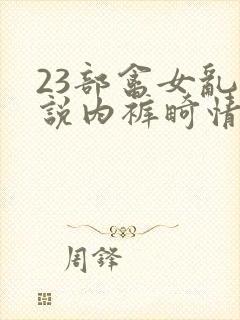 23部畲女亂
説内裤畸情
周鋒